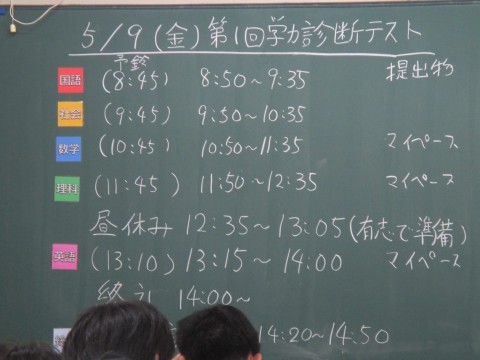 5/9(金)第1回学力診断テスト
予鈴 提出物
国語 (8:45) 8:50～9:35
社会 (9:45) 9:50～10:35
数学 (10:45) 10:50～11:35 マイペース
理科 (11:45) 11:50～12:35 マイペース
昼休み 12:35～13:05(有志で準備)
英語 (13:10) 13:15～14:00 マイペース
終礼 14:00～
14:20～14:50